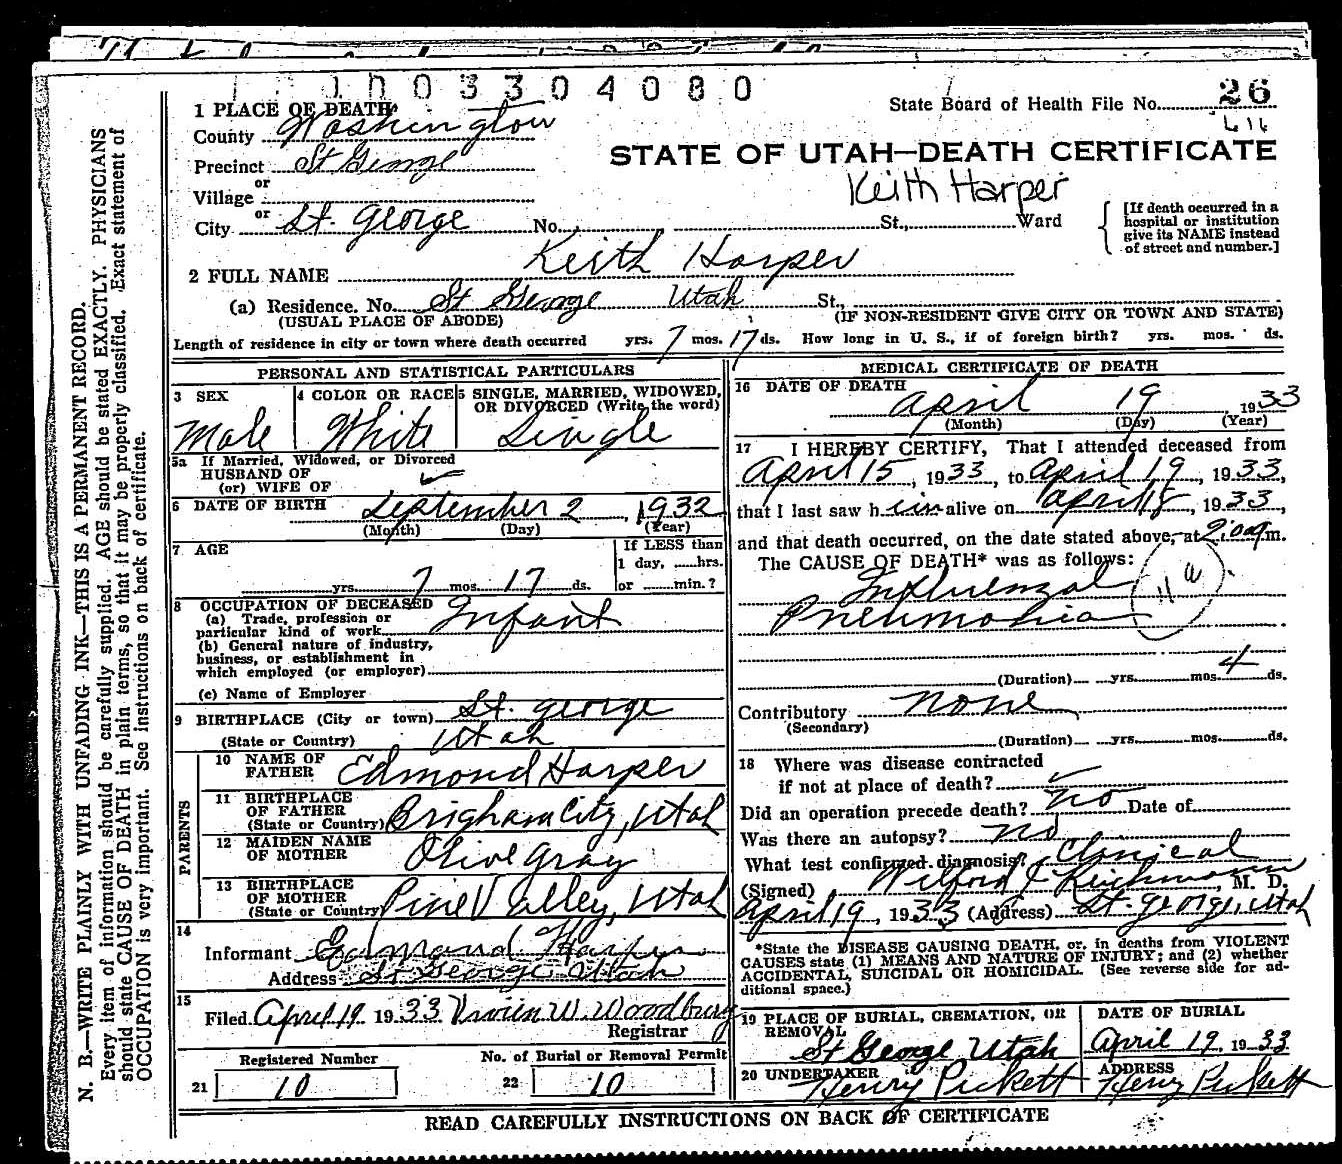 1003304080
State Board of Health File No. 26
616
1 PLACE OF DEATH
County Washington
Precinct St George
STATE OF UTAH—DEATH CERTIFICATE
or
Village
Keith Harper
or
City St. George No. St., Ward
[If death occurred in a hospital or institution give its NAME instead of street and number.]
2 FULL NAME Keith Harper
(a) Residence. No. St George Utah St.,
(USUAL PLACE OF ABODE) (IF NON-RESIDENT GIVE CITY OR TOWN AND STATE)
Length of residence in city or town where death occurred yrs. 7 mos. 17 ds. How long in U. S., if of foreign birth? yrs. mos. ds.
PERSONAL AND STATISTICAL PARTICULARS
3 SEX Male
4 COLOR OR RACE White
5 SINGLE, MARRIED, WIDOWED, OR DIVORCED (Write the word) Single
5a If Married, Widowed, or Divorced
HUSBAND OF
(or) WIFE OF
6 DATE OF BIRTH September 2, 1932
(Month) (Day) (Year)
7 AGE
yrs. 7 mos. 17 ds.
If LESS than
1 day, ......hrs.
or ......min.?
8 OCCUPATION OF DECEASED Infant
(a) Trade, profession or
particular kind of work
(b) General nature of industry,
business, or establishment in
which employed (or employer)
(c) Name of Employer
9 BIRTHPLACE (City or town) St. George
(State or Country) Utah
PARENTS
10 NAME OF FATHER Edmond Harper
11 BIRTHPLACE OF FATHER (State or Country) Brigham City, Utah
12 MAIDEN NAME OF MOTHER Olive Gray
13 BIRTHPLACE OF MOTHER (State or Country) Pine Valley, Utah
14
Informant Edmond Harper
Address St George Utah
15
Filed April 19 1933 Vivien W. Woodbury
Registrar
Registered Number No. of Burial or Removal Permit
21 10 22 10
MEDICAL CERTIFICATE OF DEATH
16 DATE OF DEATH
April 19, 1933
(Month) (Day) (Year)
17 I HEREBY CERTIFY, That I attended deceased from
April 15, 1933, to April 19, 1933,
that I last saw him alive on April 18, 1933,
and that death occurred, on the date stated above, at 2:00 a m.
The CAUSE OF DEATH* was as follows:
Influenzal
Pneumonia
11 a
(Duration) yrs. mos. 4 ds.
Contributory none
(Secondary)
(Duration) yrs. mos. ds.
18 Where was disease contracted
if not at place of death?
Did an operation precede death? no Date of
Was there an autopsy? no
What test confirmed diagnosis? Clinical
(Signed) Wilford J Reichmann, M. D.
April 19, 1933 (Address) St. George, Utah
*State the DISEASE CAUSING DEATH, or, in deaths from VIOLENT
CAUSES state (1) MEANS AND NATURE OF INJURY; and (2) whether
ACCIDENTAL, SUICIDAL OR HOMICIDAL. (See reverse side for ad-
ditional space.)
19 PLACE OF BURIAL, CREMATION, OR REMOVAL
St George Utah
DATE OF BURIAL
April 19, 1933
20 UNDERTAKER
Henry Pickett
ADDRESS
Henry Pickett
READ CAREFULLY INSTRUCTIONS ON BACK OF CERTIFICATE
N. B.—WRITE PLAINLY WITH UNFADING INK—THIS IS A PERMANENT RECORD.
Every item of information should be carefully supplied. AGE should be stated EXACTLY. PHYSICIANS
should state CAUSE OF DEATH in plain terms, so that it may be properly classified. Exact statement of
OCCUPATION is very important. See instructions on back of certificate.